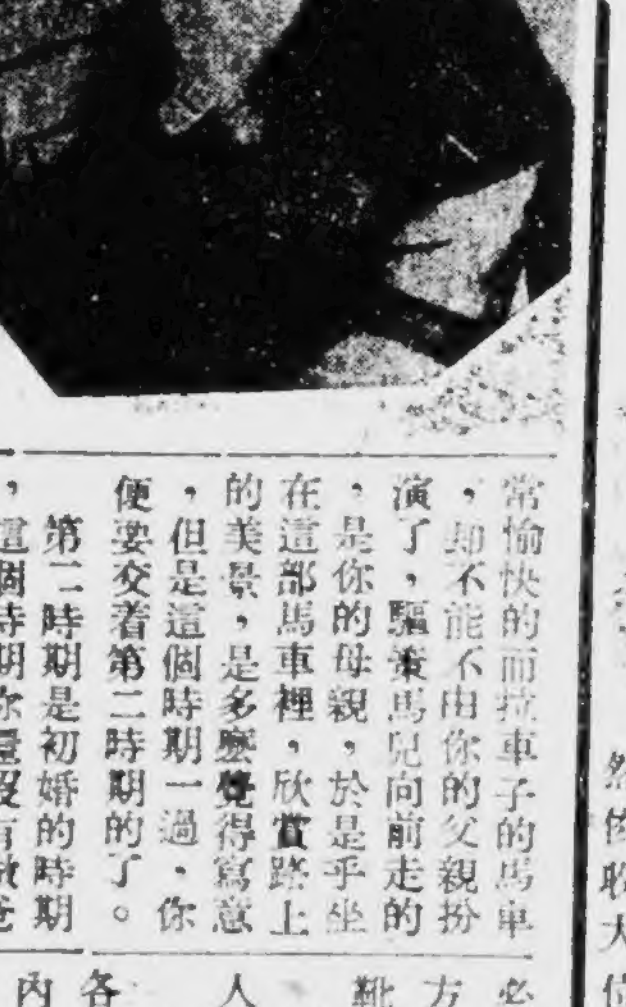 常愉快的而拉車子的馬車
，却不能不由你的父親扮
演了，驅策馬兒向前走的
，是你的母親，於是乎坐
在這部馬車裡，欣賞路上
的美景，是多麼覺得寫意
，但是這個時期一過，你
便要交着第二時期的了。
第二時期是初婚的時期
，這個時期你還沒有做爸
必
方
靴
人
各
內
然
的
收
大
位